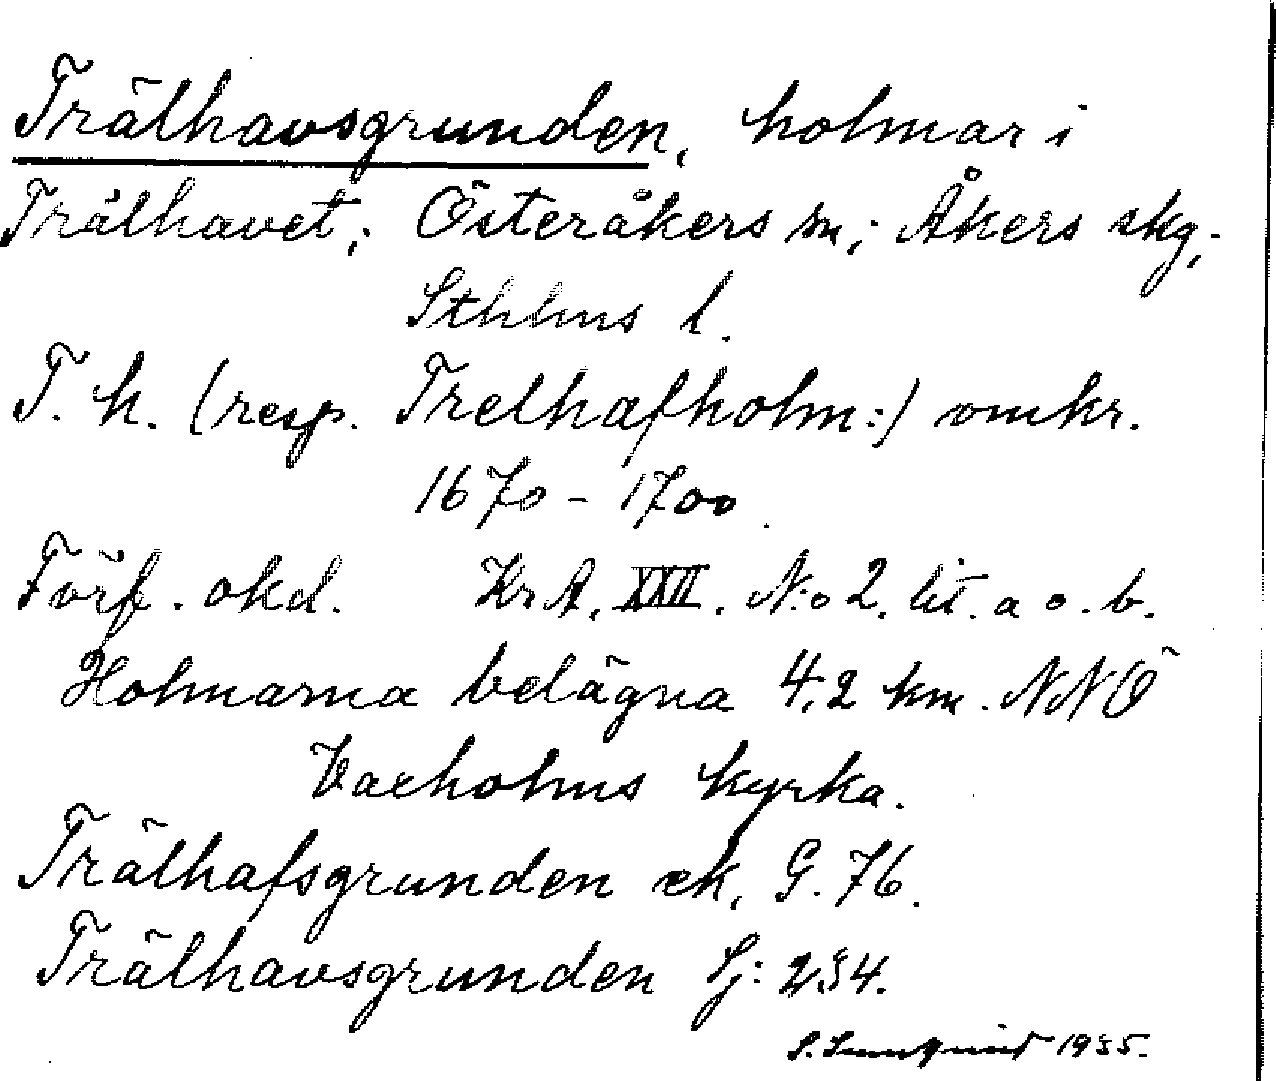 Trälhavsgrunden, holmar i
Trälhavet; Österåkers sn; Åkers skg;
Sthlms l.
T. h. (resp. Trelhafholm:) omkr.
1670 - 1700.
Förf. okd. KrA. XXVII. N:o 2. lit. a o. b.
Holmarna belägna 4,2 km. NNÖ
Vaxholms kyrka.
Trälhafsgrunden ek. G. 76.
Trälhavsgrunden Sj: 234.
1935.